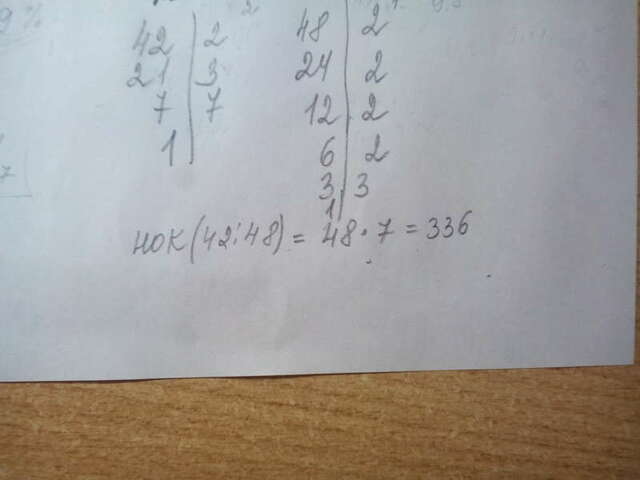 42 | 2
21 | 3
7 | 7
1 |
48 | 2
24 | 2
12 | 2
6 | 2
3 | 3
1 |
НОК(42;48) = 48·7 = 336